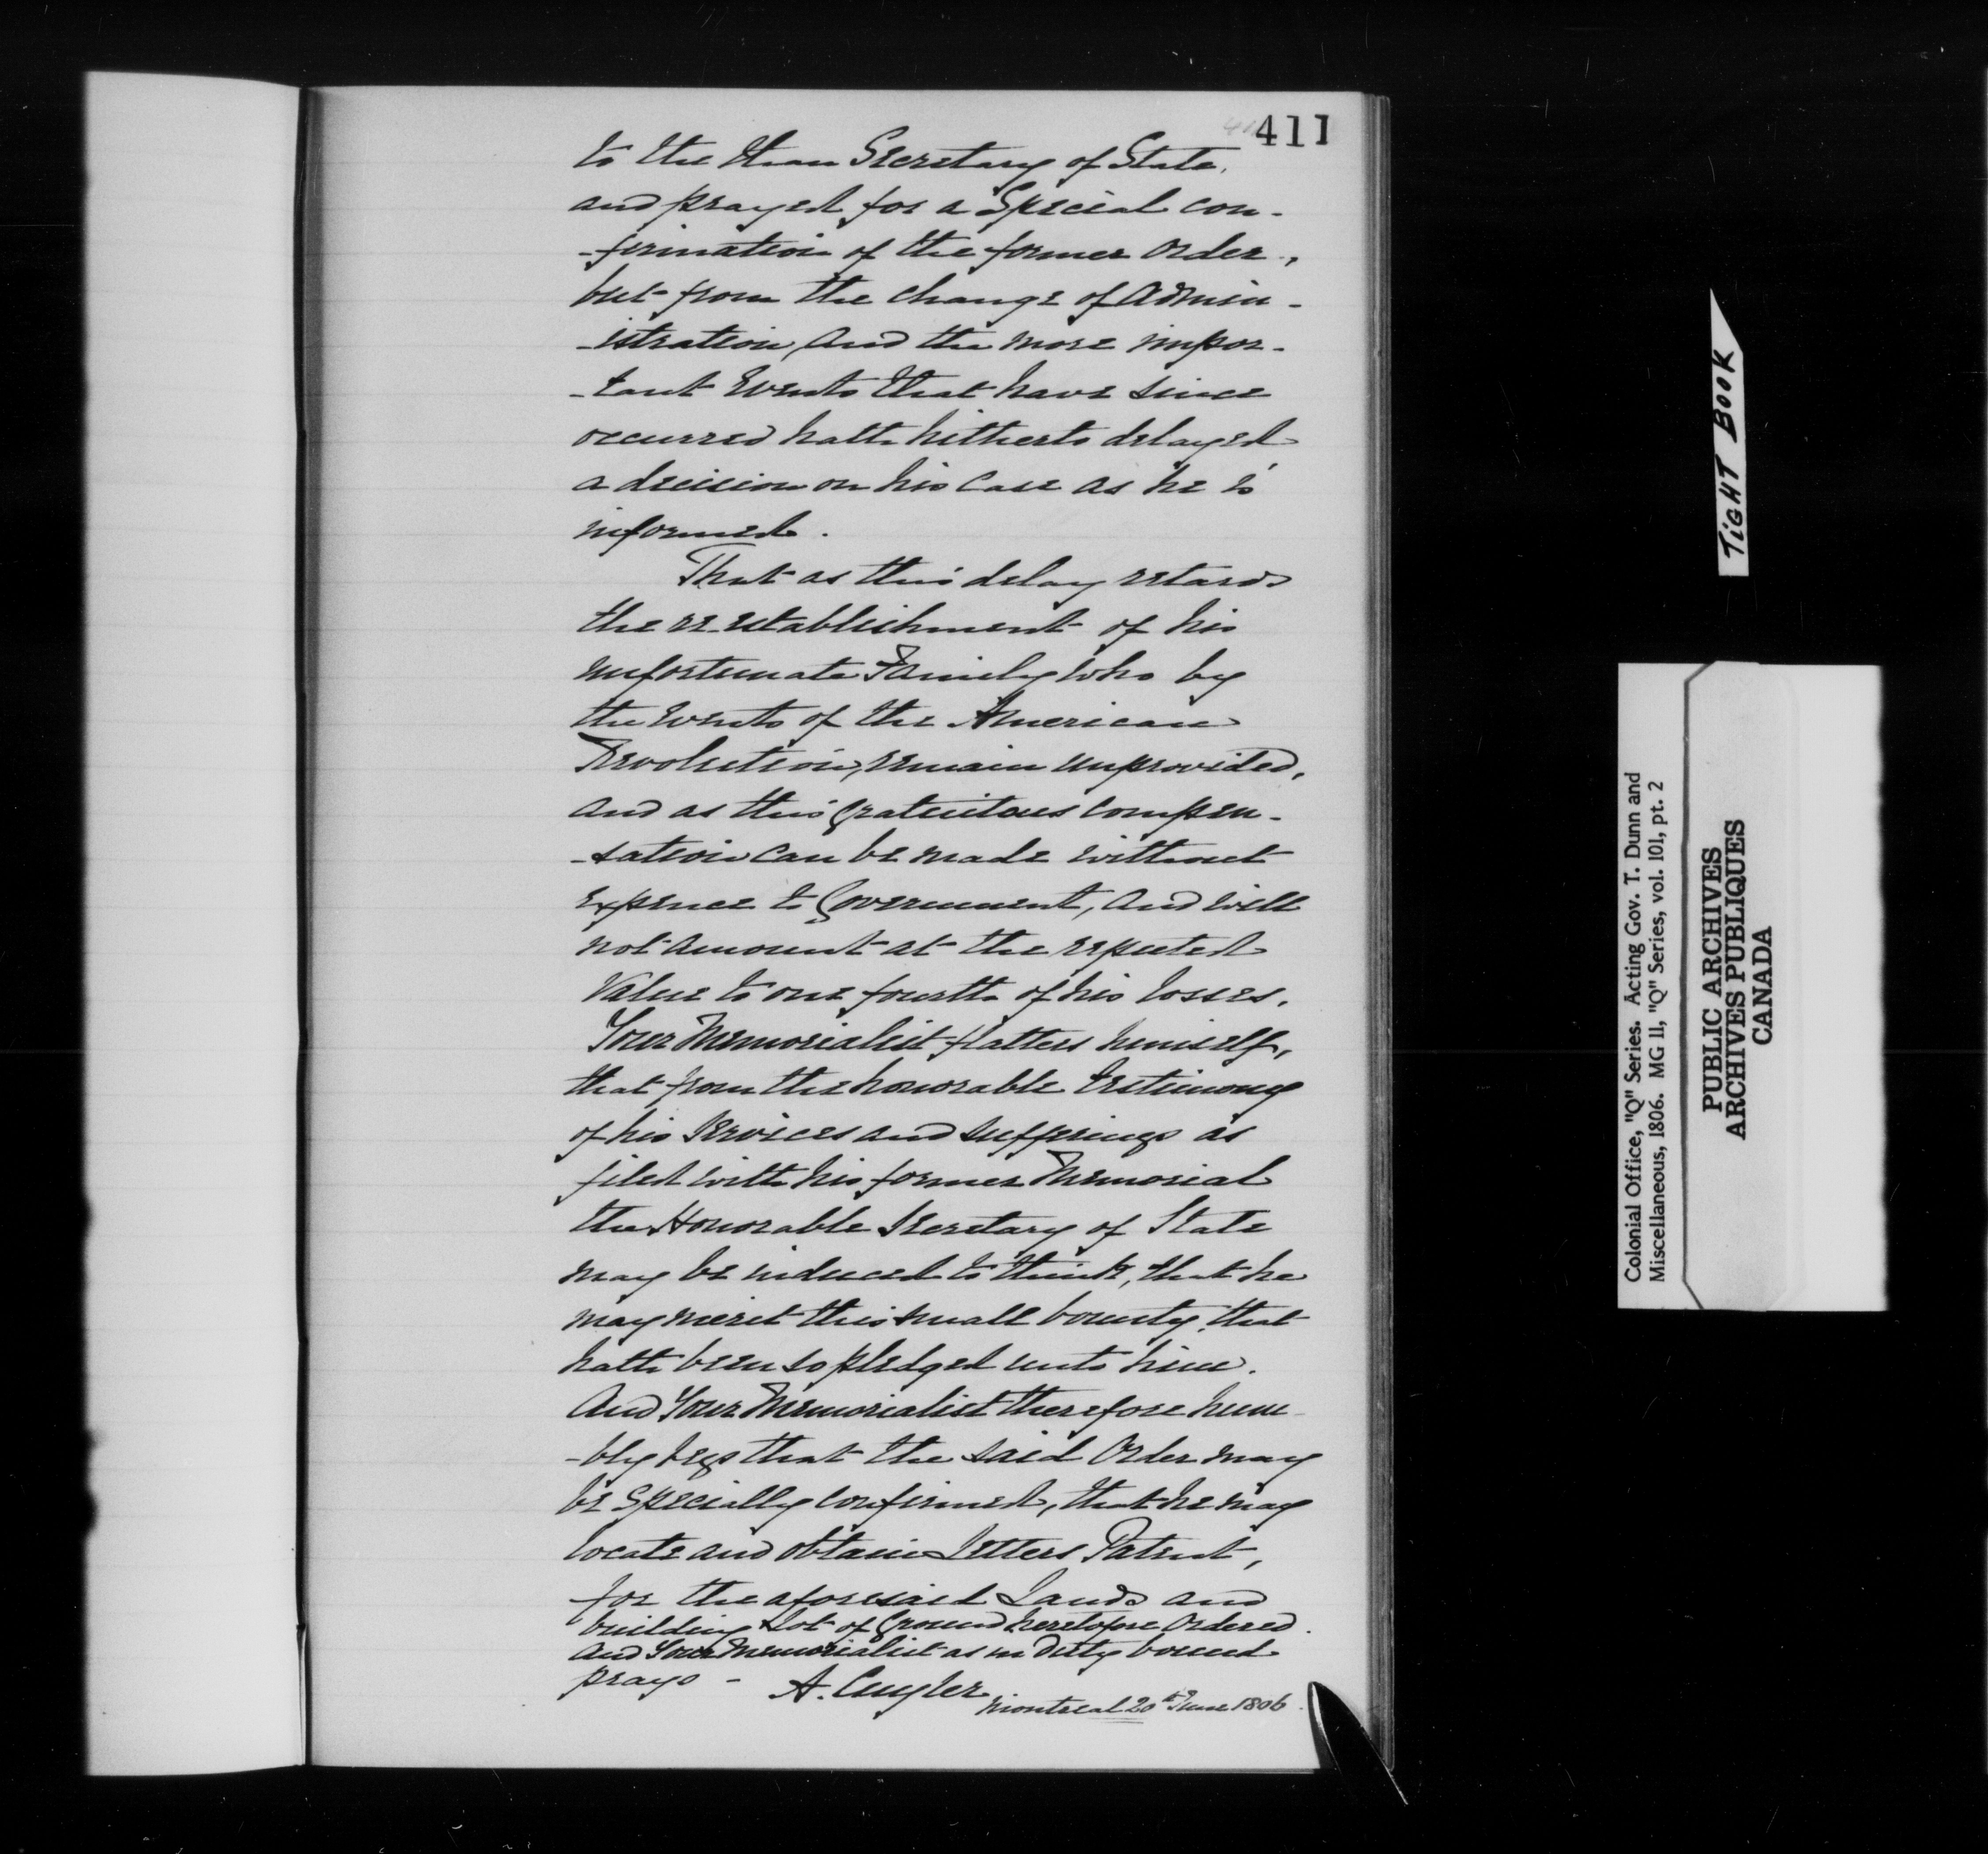 411
to the then Secretary of State,
and prayed for a Special con-
-firmation of the former Order,
but from the change of Admin-
-istration, and the more impor-
-tant Events that have since
occurred hath hitherto delayed
a decision on his Case as he is
informed.
That as this delay retards
the re-establishment of his
unfortunate Family who by
the Events of the American
Revolution, remain unprovided,
and as this gratuitous compen-
-sation can be made without
Expence to Government, and will
not amount at the reputed
Value to one fourth of his losses.
Your Memorialist flatters himself,
that from the honorable testimony
of his services and sufferings as
filed with his former Memorial
the Honorable Secretary of State
may be induced to think, that he
may merit this small bounty that
hath been so pledged unto him.
And Your Memorialist therefore hum-
-bly begs that the said Order may
be specially confirmed, that he may
locate and obtain Letters Patent,
for the aforesaid Lands and
building Lot of Ground heretofore Ordered.
And Your Memorialist as in duty bound
prays - A. Cuyler
Montreal 20th June 1806.
TIGHT BOOK
Colonial Office, "Q" Series. Acting Gov. T. Dunn and
Miscellaneous, 1806. MG 11, "Q" Series, vol. 101, pt. 2
PUBLIC ARCHIVES
ARCHIVES PUBLIQUES
CANADA